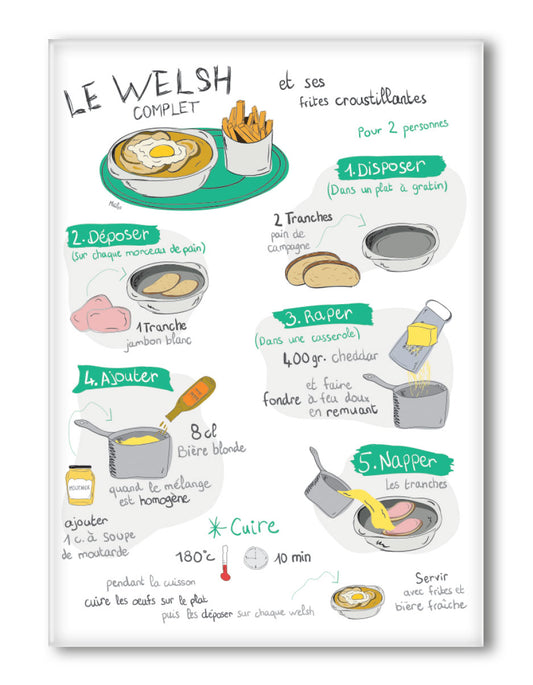 LE WELSH
COMPLET
et ses
frites croustillantes
Pour 2 personnes
1. Disposer
(Dans un plat à gratin)
2 Tranches
pain de
campagne
2. Déposer
(Sur chaque morceau de pain)
1 Tranche
jambon blanc
3. Raper
(Dans une casserole)
400 gr. cheddar
et faire
fondre à feu doux
en remuant
4. Ajouter
8 cl
Bière blonde
quand le mélange
est homogène
MOUTARDE
ajouter
1 c. à soupe
de moutarde
5. Napper
Les tranches
Cuire
180°c
10 min
pendant la cuisson
cuire les oeufs sur le plat
puis les déposer sur chaque welsh
Servir
avec frites et
bière fraîche